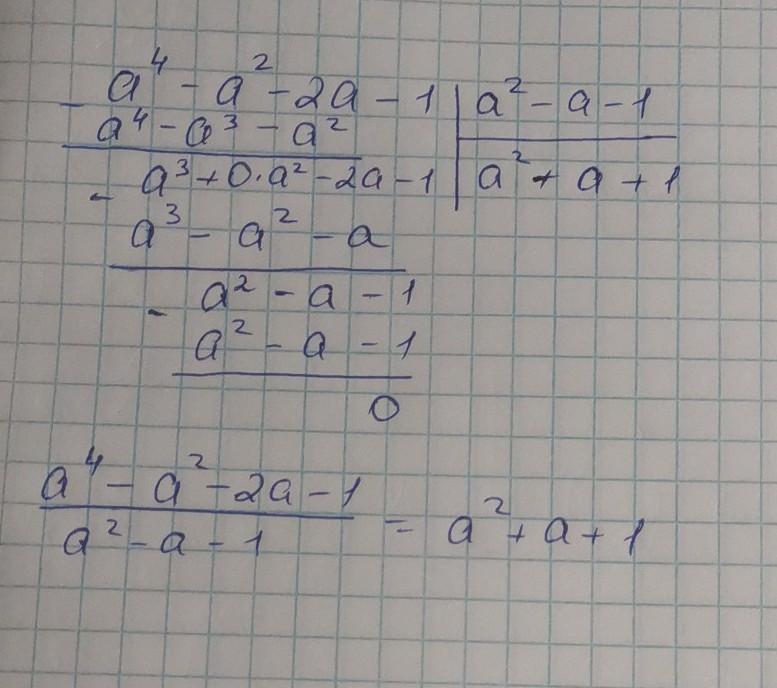 - a⁴ - a² - 2a - 1 | a² - a - 1
a⁴ - a³ - a² | a² + a + 1
- a³ + 0·a² - 2a - 1
a³ - a² - a
- a² - a - 1
a² - a - 1
0
a⁴ - a² - 2a - 1
a² - a - 1
= a² + a + 1